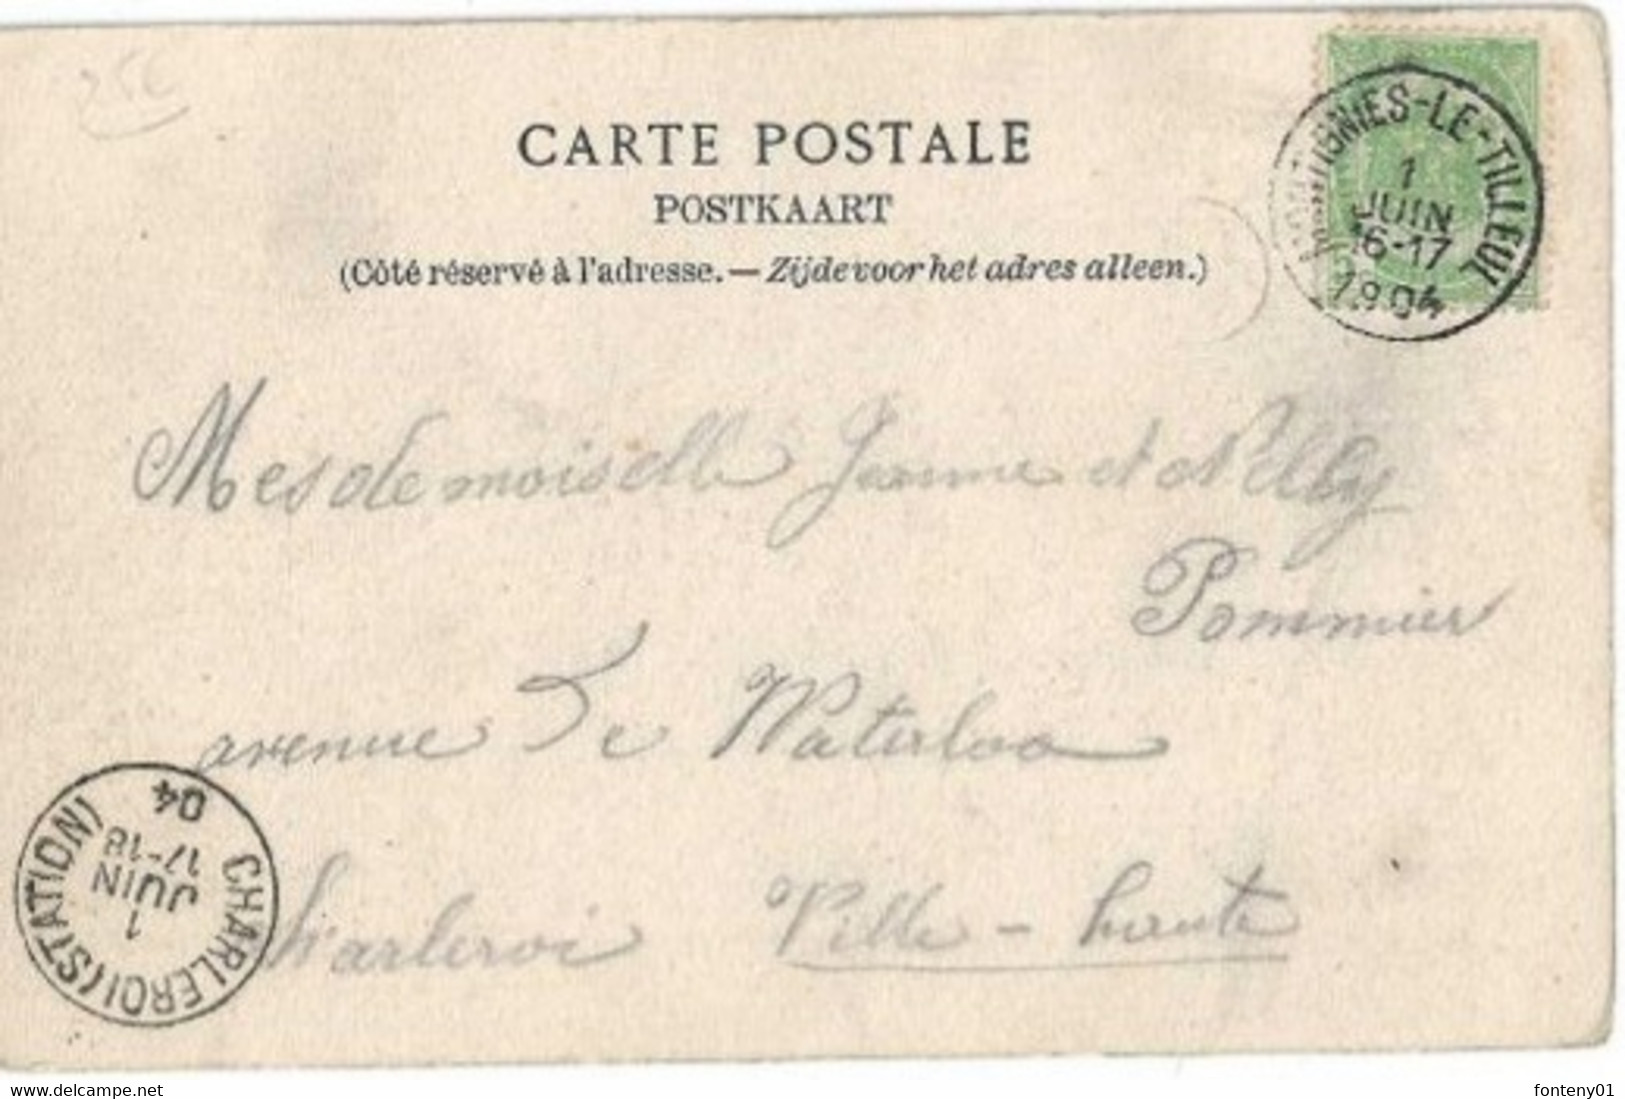 25c
CARTE POSTALE
POSTKAART
(Côté réservé à l'adresse. — Zijde voor het adres alleen.)
MONTIGNIES-LE-TILLEUL
1
JUIN
16-17
1904
Mesdemoiselle Jeanne et Nelly
Pommier
avenue de Waterloo
Charleroi Ville-haute
CHARLEROI (STATION)
1
JUIN
17-18
04
www.delcampe.net
fonteny01